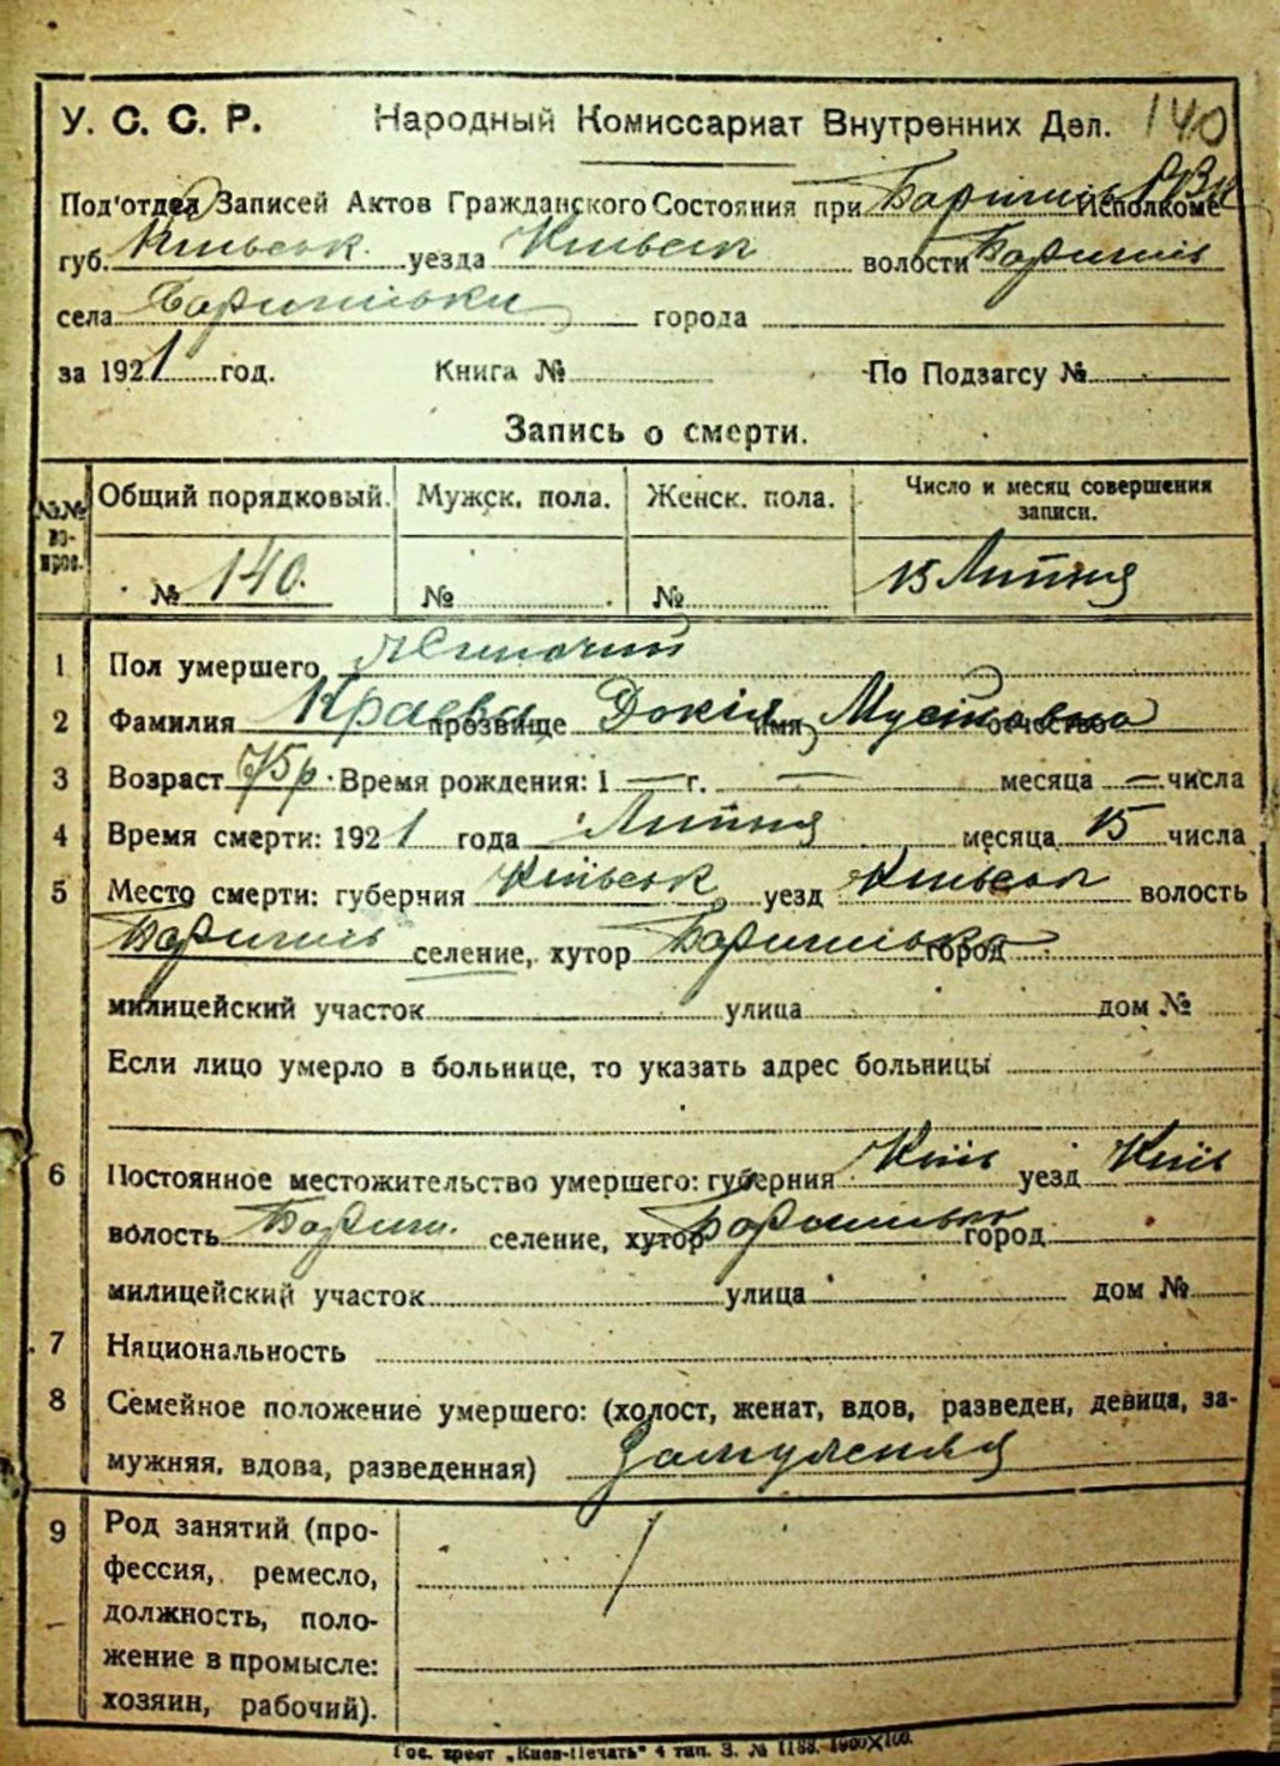 У. С. С. Р. Народный Комиссариат Внутренних Дел. 140
Под'отдел Записей Актов Гражданского Состояния при Баришів РВК Исполкоме
губ. Київськ. уезда Київськ волости Баришів
села Баришівки города
за 1921 год. Книга № По Подзагсу №
Запись о смерти.
№№ во- прос. Общий порядковый. Мужск. пола. Женск. пола. Число и месяц совершения записи.
№ 140. № № 15 Липня
1 Пол умершего Жиночий
2 Фамилия Краєва прозвище Докія имя отчество
3 Возраст 75 р. Время рождения: 1 — г. — месяца — числа
4 Время смерти: 1921 года Липня месяца 15 числа
5 Место смерти: губерния Київськ уезд Київськ волость
Баришів селение, хутор Баришівка город
милицейский участок улица дом №
Если лицо умерло в больнице, то указать адрес больницы
6 Постоянное местожительство умершего: губерния Київ уезд Київ
волость Бариш. селение, хутор город
милицейский участок улица дом №
7 Национальность
8 Семейное положение умершего: (холост, женат, вдов, разведен, девица, за-
мужняя, вдова, разведенная) Замужняя
9 Род занятий (про-
фессия, ремесло,
должность, поло-
жение в промысле:
хозяин, рабочий).
Гос. трест „Киев-Печать“ 4 тип. З. № 1188. 1900×100.